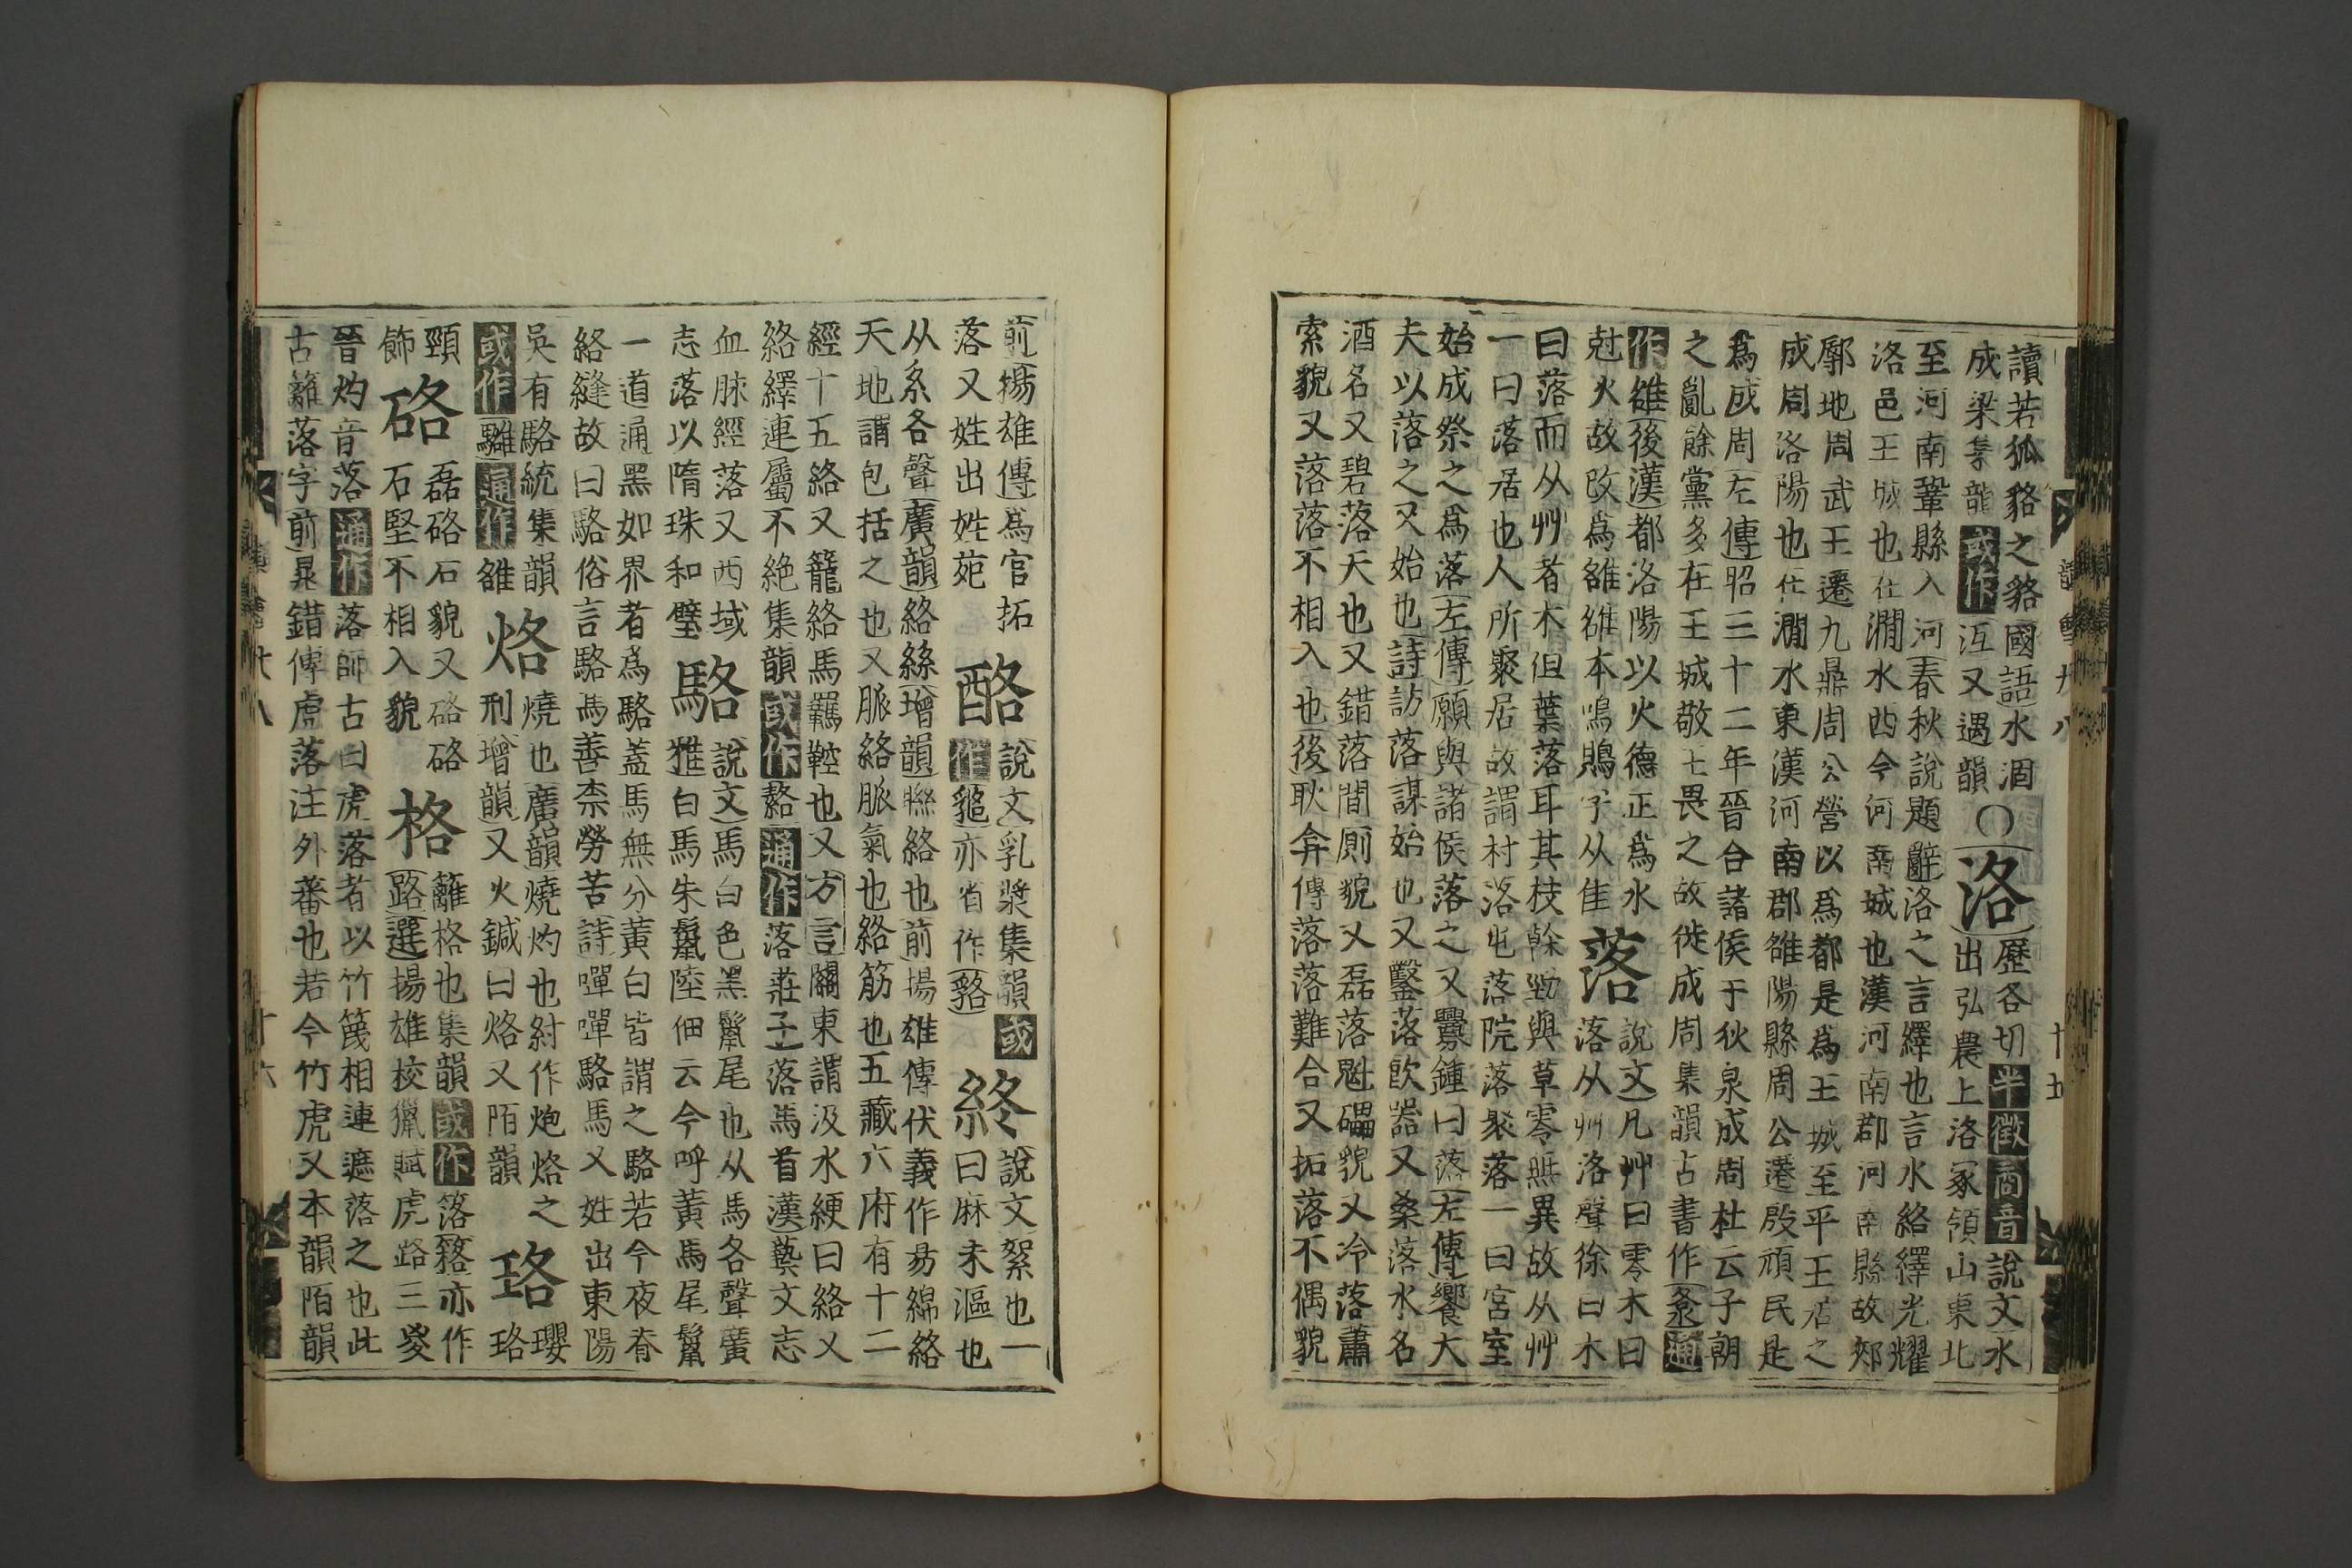 讀若狐貉之貉國語水涸
成梁㝅龍或作冱又遇韻〇洛歷各切半徵商音說文水
出弘農上洛冢領山東北
至河南鞏縣入河春秋說題辭洛之言繹也言水絡繹光耀
洛邑王城也在澗水西今河南城也漢河南郡河南縣故郟
鄏地周武王遷九鼎周公營以爲都是爲王城至平王居之
成周洛陽也在澗水東漢河南郡雒陽縣周公遷殷頑民是
爲成周左傳昭三十二年晉合諸侯于狄泉成周杜云子朝
之亂餘黨多在王城敬王畏之故徙成周集韻古書作𣳆通
作雒後漢都洛陽以火德正爲水
尅火故改爲雒雒本鳴鵙字从隹落說文凡艸曰零木曰
落从艸洛聲徐曰木
曰落而从艸者木但葉落耳其枝榦勁與草零無異故从艸
一曰落居也人所聚居故謂村落屯落院落聚落一曰宮室
始成祭之爲落左傳願與諸侯落之又釁鍾曰落左傳饗大
夫以落之又始也詩訪落謀始也又鑿落飲器又桑落水名
酒名又碧落天也又錯落間厠貌又磊落魁礨貌又冷落蕭
索貌又落落不相入也後耿弇傳落落難合又拓落不偶貌
前揚雄傳爲官拓
落又姓出姓苑酪說文乳漿集韻或
作𩱇亦省作䝤絡說文絮也一
曰麻未漚也
从糸各聲廣韻絡絲增韻聮絡也前揚雄傳伏羲作易綿絡
天地謂包括之也又脈絡脈氣也絡筋也五藏六府有十二
經十五絡又籠絡馬羈鞚也又方言關東謂汲水綆曰絡又
絡繹連屬不絕集韻或作䌴通作落莊子落馬首漢藝文志
血脉經落又西域
志落以隋珠和璧駱說文馬白色黑鬣尾也从馬各聲廣
雅白馬朱鬣陸佃云今呼黃馬尾鬣
一道通黑如界者爲駱蓋馬無分黃白皆謂之駱若今夜脊
絡縫故曰駱俗言駱馬善柰勞苦詩嘽嘽駱馬又姓出東陽
吳有駱統集韻
或作䮫通作雒烙燒也廣韻燒灼也紂作炮烙之
刑增韻又火鍼曰烙又陌韻珞瓔
珞
頸
飾硌磊硌石貌又硌硌
石堅不相入貌格籬格也集韻或作落䇺亦作
路選揚雄校獵賦虎路三㚇
晉灼音落通作落師古曰虎落者以竹篾相連遮落之也此
古籬落字前鼂錯傳虎落注外蕃也若今竹虎又本韻陌韻